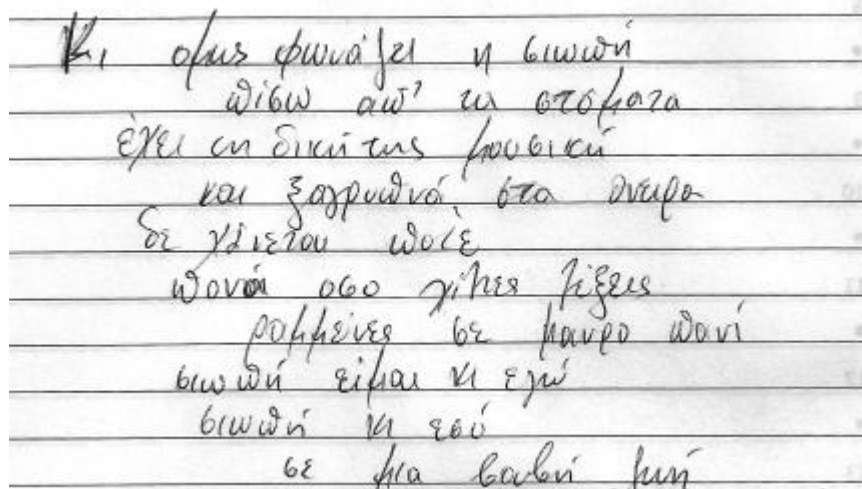 Κι όμως φωνάζει η σιωπή
πίσω απ' τα στόματα
έχει τη δική της μουσική
και ξαγρυπνά στα όνειρα
δε χάνεται ποτέ
πονά οσο λίγες λέξεις
ραμμένες σε μαυρο πανί
σιωπή είμαι κι εγώ
σιωπή κι εσύ
σε μια βουβή ζωή